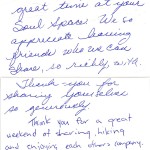 great time at your
Soul Space. We so
appreciate having
friends who we can
share, so richly, with.
Thank you for
sharing yourselves
so generously.
Thank you for a great
weekend of sharing, hiking
and enjoying each others company.